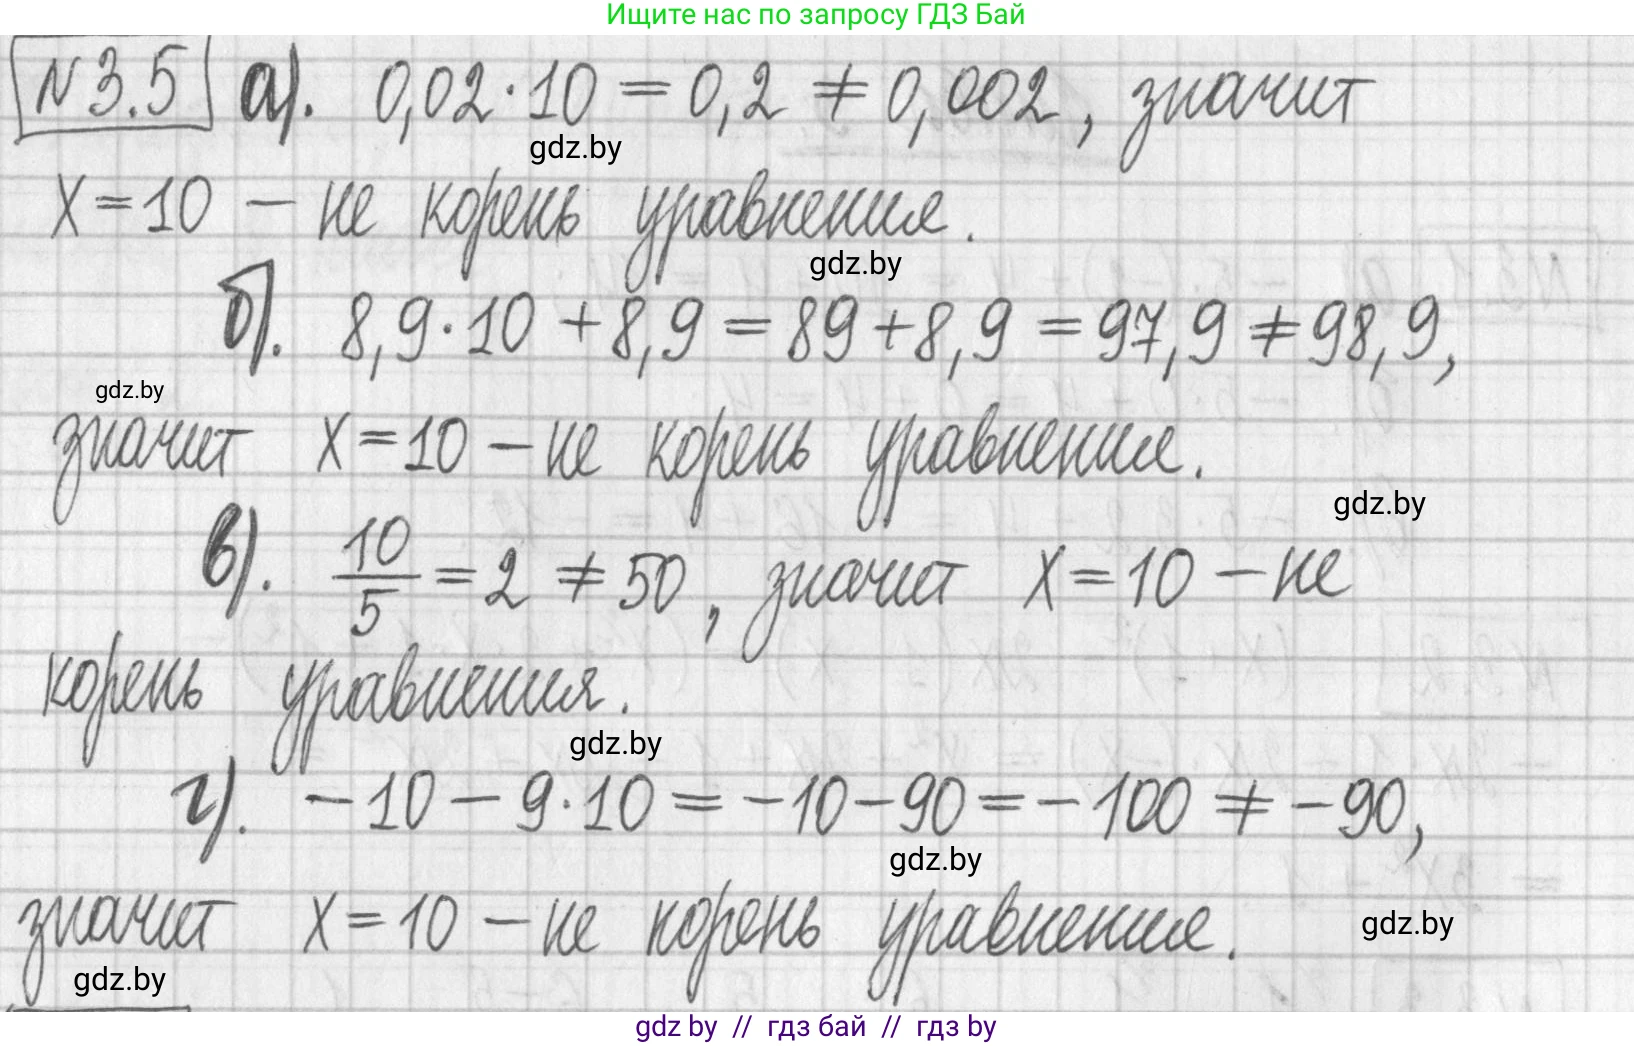 Ищите нас по запросу ГДЗ Бай
№3.5 а). 0,02·10 = 0,2 ≠ 0,002, значит
gdz.by
x=10 – не корень уравнения.
gdz.by
б). 8,9·10 +8,9 = 89+8,9 = 97,9 ≠ 98,9,
gdz.by
значит x=10 – не корень уравнения.
gdz.by
в). 10/5 = 2 ≠ 50, значит x=10 – не
корень уравнения.
gdz.by
г). –10 – 9·10 = –10–90 = –100 ≠ –90,
gdz.by
значит x=10 – не корень уравнения.
gdz.by
gdz.by
gdz by // гдз бай // гдз by